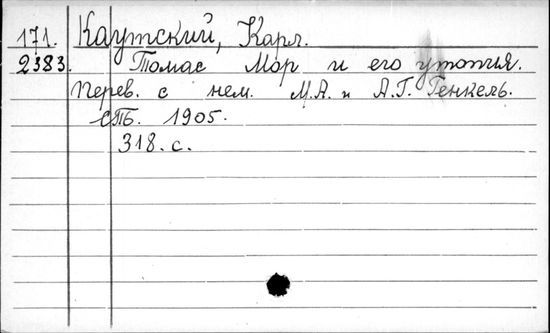 171. Каутский, Карл.
2383. Томас Мор и его утопия.
Перев. с нем. М.А. и А.Г. Генкель.
СПБ. 1905.
318. с.